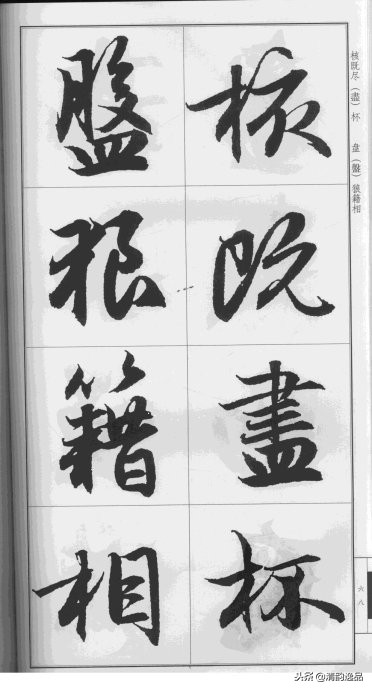 核既盡杯
盤狼籍相
核既尽（盡）杯 盘（盤）狼籍相
六八
头条@清韵逸品